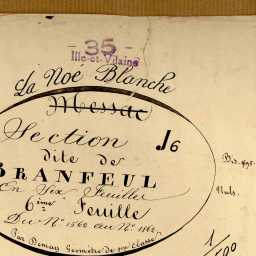 - 35 -
Ille-et-Vilaine
La Noé Blanche
Messac
Section J6
dite de
BRANFEUL
En Six Feuilles
6ème Feuille
Du N° 1560 au N° 1162
Par Demay Géomètre de 1ère classe
Nuls.